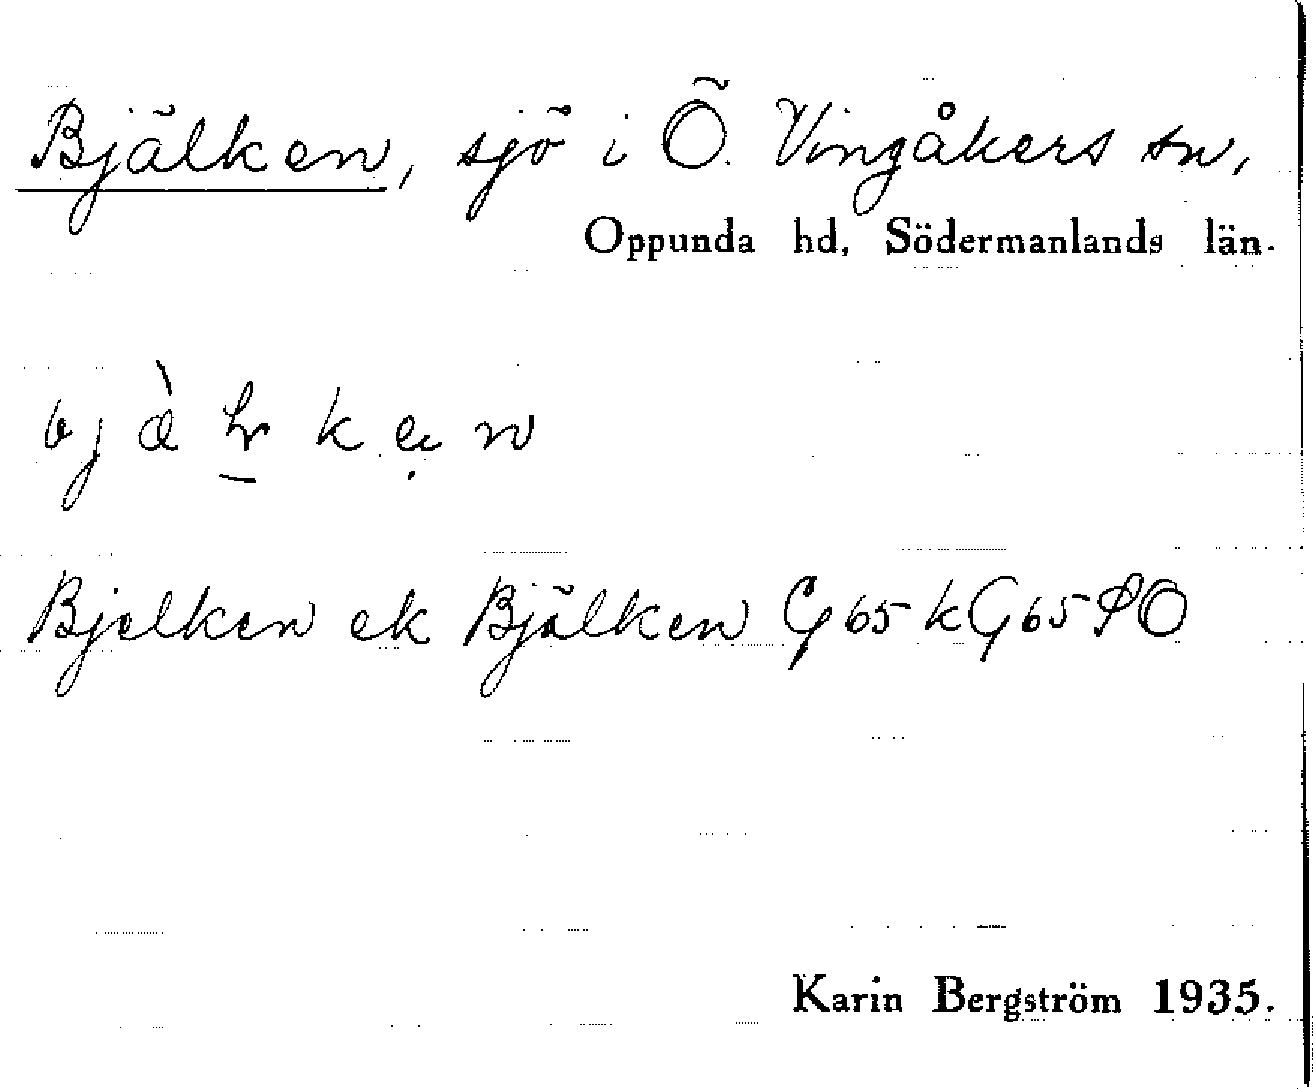 Bjälken, sjö i Ö. Vingåkers sn,
Oppunda hd, Södermanlands län.
Bjelken ek Bjälken G65 k G65 SO
Karin Bergström 1935.